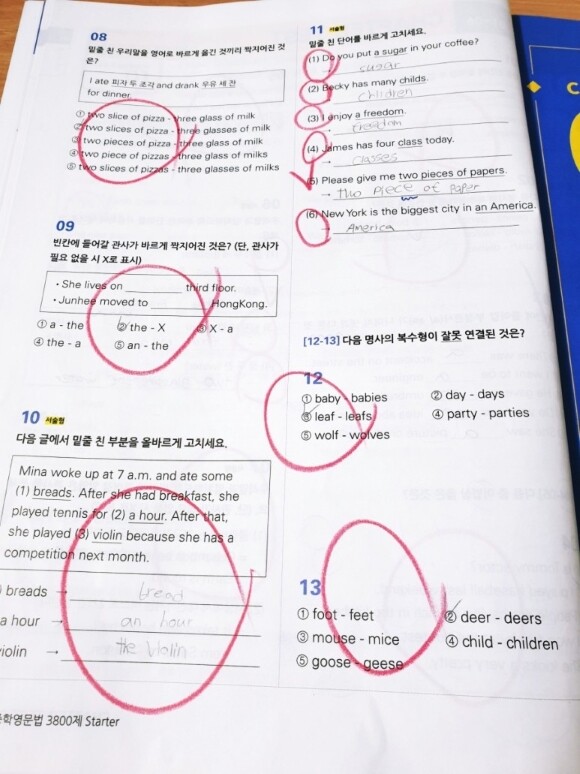 08
밑줄 친 우리말을 영어로 바르게 옮긴 것끼리 짝지어진 것
은?
I ate 피자 두 조각 and drank 우유 세 잔
for dinner.
① two slice of pizza - three glass of milk
② two slices of pizza - three glasses of milk
③ two pieces of pizza - three glass of milk
④ two piece of pizzas - three glass of milks
⑤ two slices of pizzas - three glasses of milks
09
빈칸에 들어갈 관사가 바르게 짝지어진 것은? (단, 관사가
필요 없을 시 X로 표시)
• She lives on ________ third floor.
• Junhee moved to ________ HongKong.
① a - the ② the - X ③ X - a
④ the - a ⑤ an - the
10 서술형
다음 글에서 밑줄 친 부분을 올바르게 고치세요.
Mina woke up at 7 a.m. and ate some
(1) breads. After she had breakfast, she
played tennis for (2) a hour. After that,
she played (3) violin because she has a
competition next month.
) breads → bread
a hour → an hour
violin → the violin
중학영문법 3800제 Starter
11 서술형
밑줄 친 단어를 바르게 고치세요.
(1) Do you put a sugar in your coffee?
→ sugar
(2) Becky has many childs.
→ children
(3) I enjoy a freedom.
→ freedom
(4) James has four class today.
→ classes
(5) Please give me two pieces of papers.
→ two piece of paper
(6) New York is the biggest city in an America.
→ America
[12-13] 다음 명사의 복수형이 잘못 연결된 것은?
12
① baby - babies ② day - days
③ leaf - leafs ④ party - parties
⑤ wolf - wolves
13
① foot - feet ② deer - deers
③ mouse - mice ④ child - children
⑤ goose - geese
C